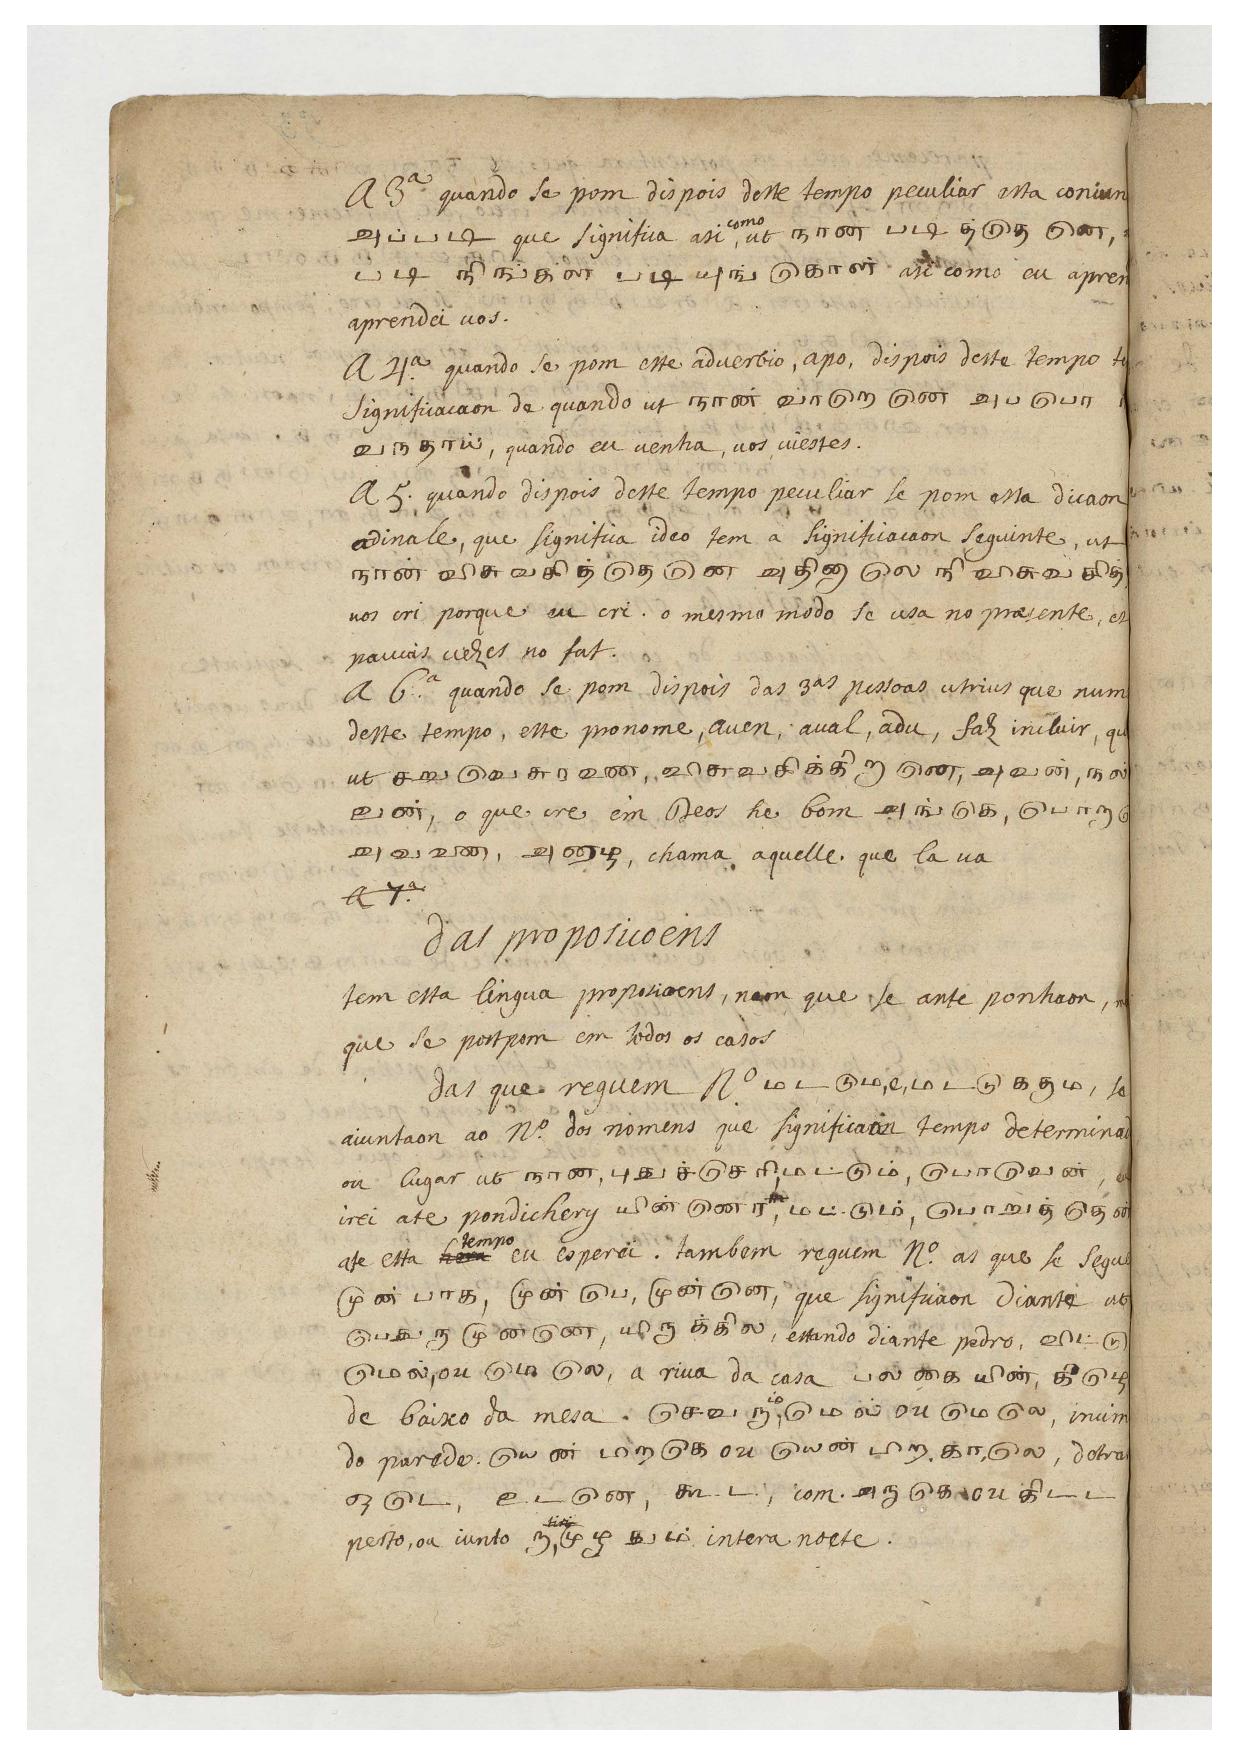 A 3ª quando se pom dispois deste tempo peculiar esta coniun
அப்படி que significa asi como, ut நான் படித்தேனே,
படி நிங்கள் படியுங்கொள் asi como eu apren
aprendei uos.
A 4ª quando se pom este aduerbio, apo, dispois deste tempo
significacaon de quando ut நான் வாறேனே அபபொ
வநதாய், quando eu uenha, uos uiestes.
A 5. quando dispois deste tempo peculiar se pom esta dicaon
adinale, que significa ideo tem a significacaon seguinte, ut
நான் விசுவசித்தேனே அதினாலே நி விசுவசித
uos cri porque eu cri. o mesmo modo se usa no præsente, e
paucas uezes no fut.
A 6.ª quando se pom dispois das 3as pessoas utrius que num
deste tempo, este pronome, auen, aual, adu, faz incluir, qu
ut சறுவெசுரனை, விசுவசிக்கிறானே, அவன், நல்
வன், o que cre em Deos he bom அங்கெ, பொறா
அவனை, அழை, chama aquelle que la ua
A 7ª
das proposicoens
tem esta lingua proposicoens, naon que se ante ponhaon,
que se postpom em todos os casos
das que reguem Nº மடடும, e, மடடுககும, se
aiuntaon ao Nº. dos nomens que significaon tempo determinad
ou lugar ut நான, புதுச்சேரி, மட்டும், பொவென்,
irei ate pondichery யின்னேரம், மட்டும், பொறுத்தேன்
ate esta hora tempo eu esperei. tambem reguem Nº. as que se segue
முன்பாக, முன்பே, முன்னே, que significaon diante ut
பெதுருமுனனே, யிருக்கில, estando diante pedro, விட்டு
மேல், ou மேலே, a riua da casa பலகையின், கிழெ
de baixo da mesa. செவரும், மேல் ou மேலே, incim
do parede. யென் பிறகே ou யென் பிறகாலே, detra
ஓடே, உடனே, கூட, com. அருகே ou கிட்ட
perto, ou iunto ராமுழுதும் intera noete.